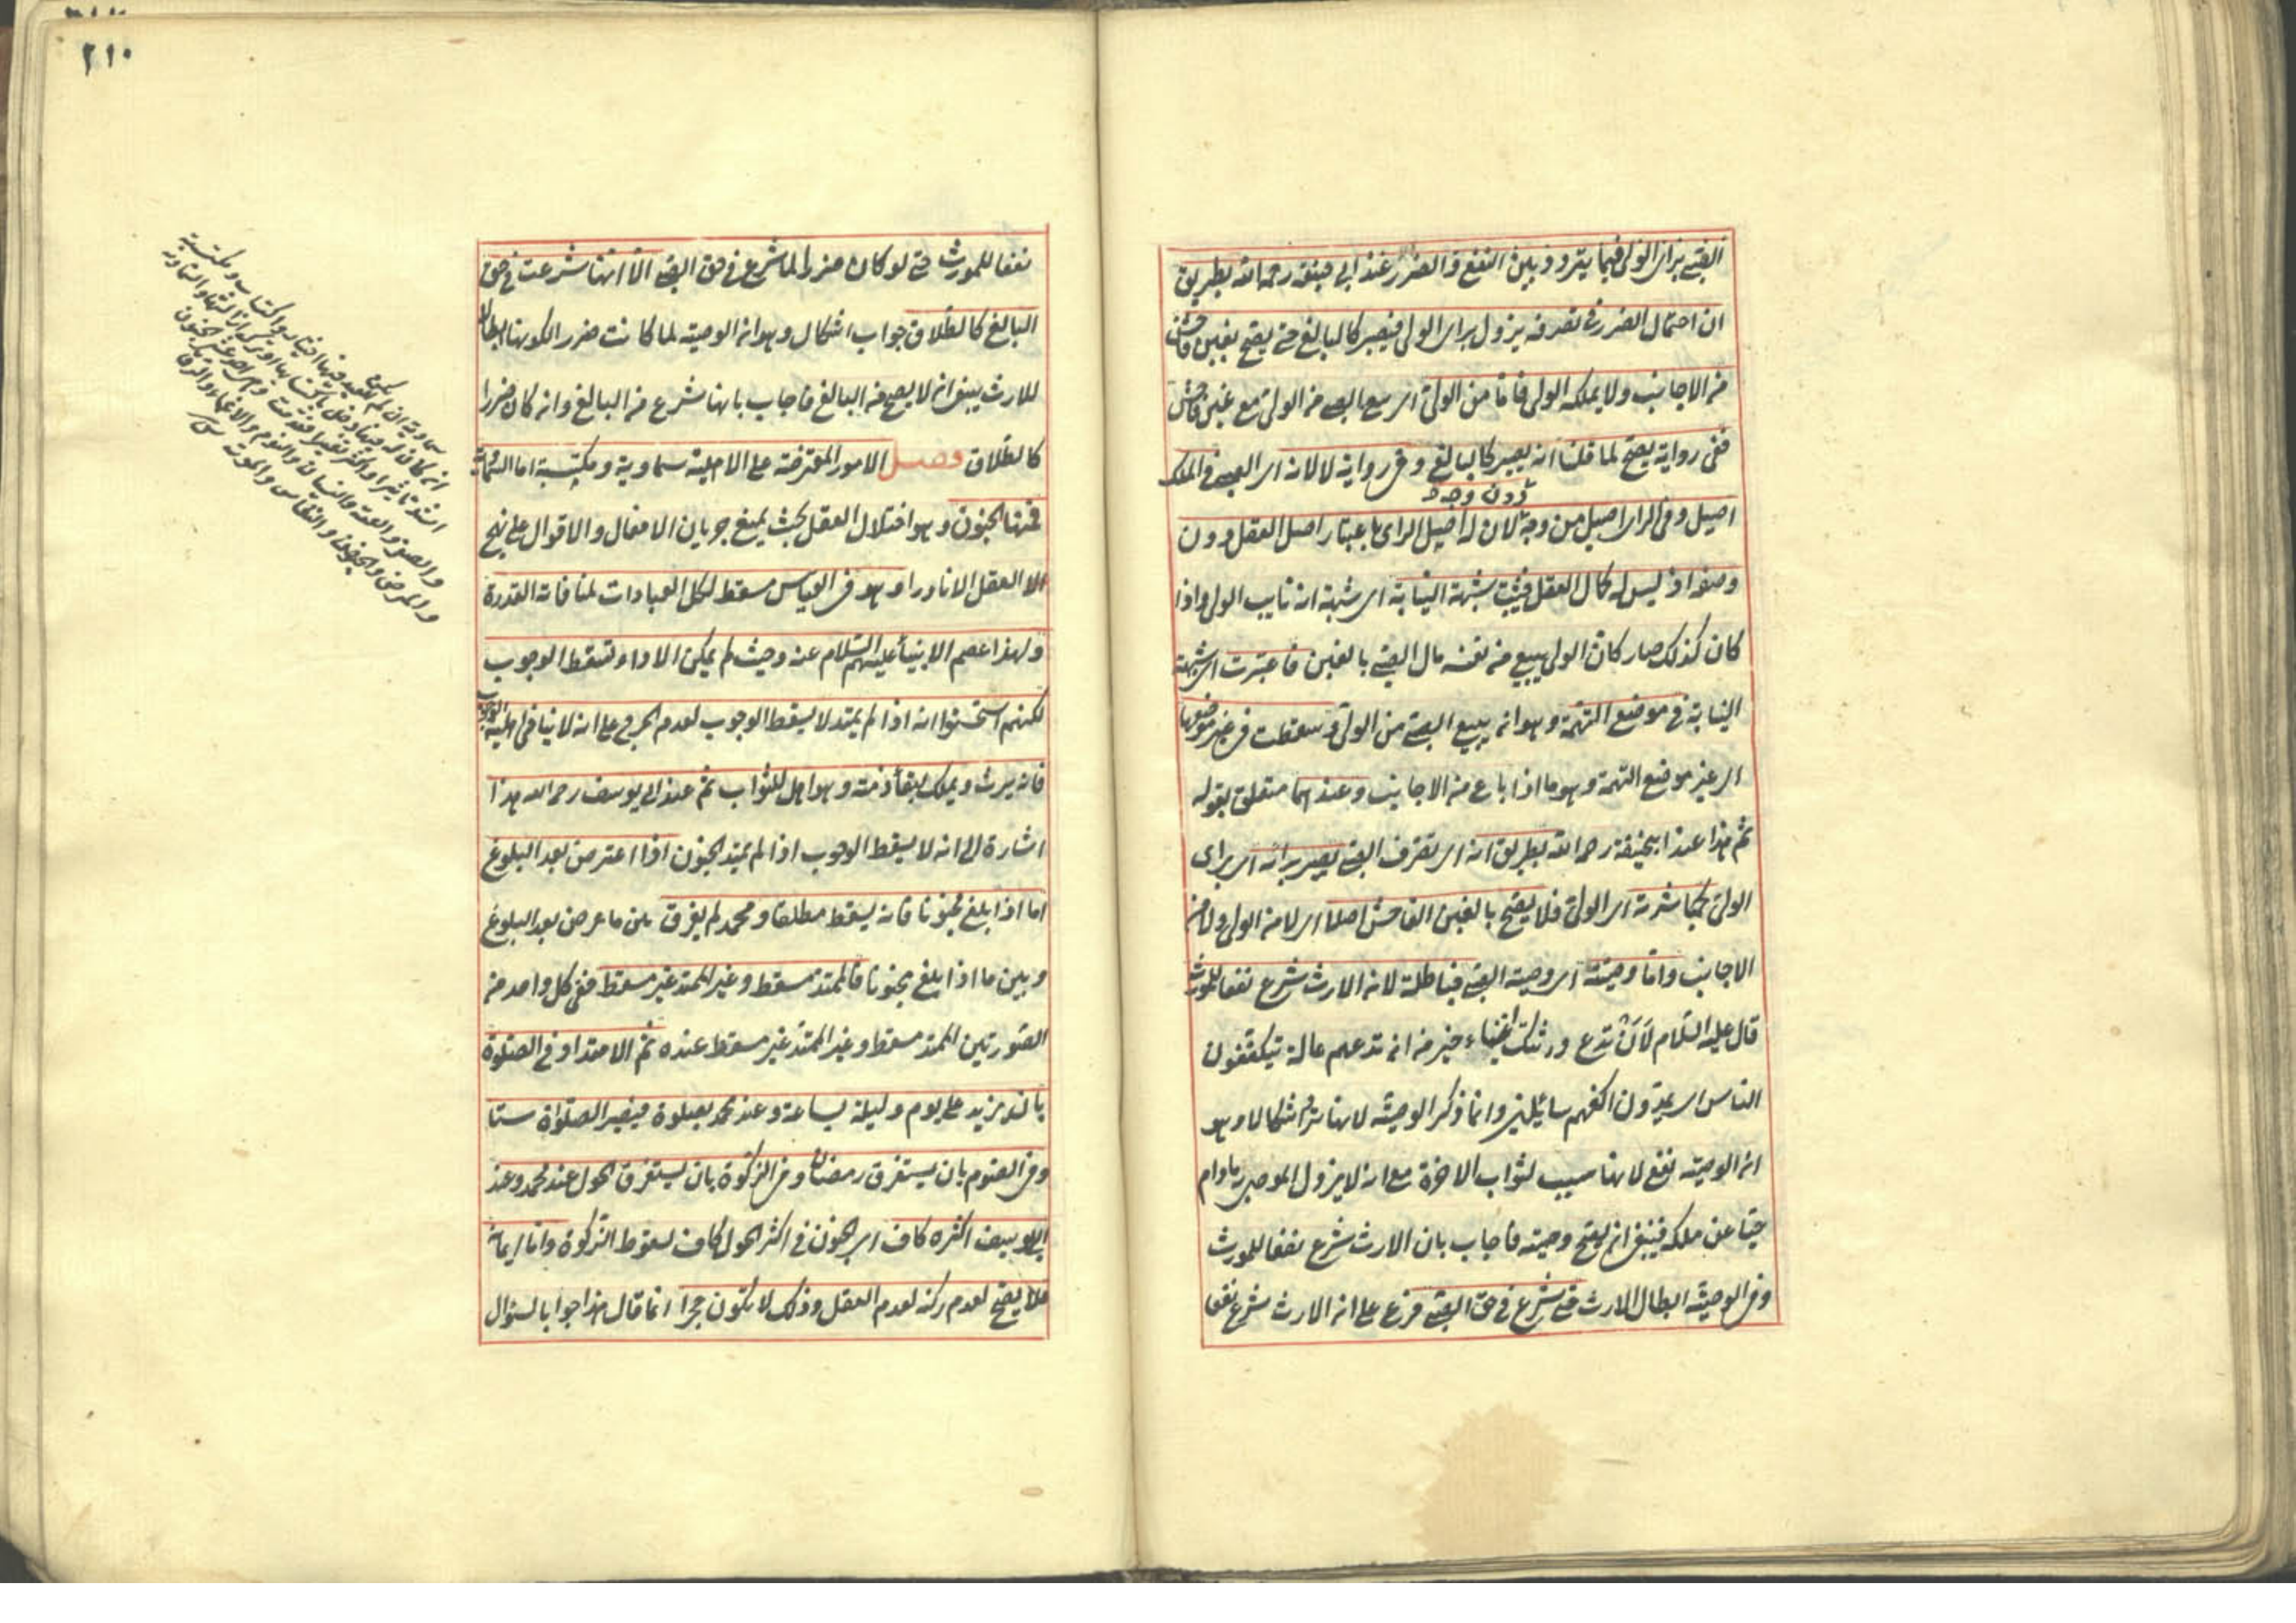 الصبي براى الولى فيما يتردد بين النفع والضرر عند ابى حنيفة رحمه الله بطريق
ان احتمال الضرر فى تصرفه يزول براى الولى فيصير كالبالغ حتى يصح بغبن فاحش
من الاجانب ولا يملكه الولى فاما من الولى اى بيع الصبى من الولى مع غبن فاحش
ففى رواية يصح لما قلنا انه يصير كالبالغ وفى رواية لا لانه اى الصبى فى الملك
اصيل وفى الراى اصيل من وجه دون وجه لان له اصيل الراى باعتبار اصل العقل دون
وصفه اذ ليس له كمال العقل فيثبت شبهة النيابة اى شبهة انه نايب الولى واذا
كان كذلك صار كان الولى يبيع من نفسه مال الصبى بالغبن فاعتبرت اى شبهة
النيابة فى موضع التهمة وهو انه يبيع الصبى من الولى وسقطت فى غير موضعها
اى غير موضع التهمة وهو ما اذا باع من الاجانب وعندهما متعلق بقوله
ثم هذا عند ابيحنيفة رحمه الله بطريق انه اى تصرف الصبى يصير برائه اى براى
الولى كمباشرته اى الولى فلا يصح بالغبن الفاحش اصلا اى لا من الولى ولا من
الاجانب واما وصيته اى وصية الصبى فباطلة لان الارث شرع نفعا للمورث
قال عليه السلام لان تدع ورثتك اغنياء خير من ان تدعهم عالة يتكففون
الناس اى يمدون اكفهم سائلين وانما ذكر الوصية لانها ترد اشكالا وهو
ان الوصية نفع لانها سبب لثواب الاخرة مع انه لا يزول الموصى به مادام
حيا عن ملكه فينبغى ان يصح وصيته فاجاب بان الارث شرع نفعا للمورث
وفى الوصية ابطال الارث حتى شرع فى حق الصبى فرع على ان الارث شرع نفعا
٢١٠
نفعا للمورث حتى لو كان ضررا لما شرع فى حق الصبى الا انها شرعت فى حق
البالغ كالطلاق جواب اشكال وهو ان الوصية لما كانت ضررا لكونها ابطالا
للارث ينبغى ان لا يصح من البالغ فاجاب بانها شرع من البالغ وان كان ضررا
كالطلاق فصل الامور المعترضة على الاهلية سماوية ومكتسبة اما السماوية
فمنها الجنون وهو اختلال العقل بحيث يمنع جريان الافعال والاقوال على نهج
العقل الا نادرا وهو فى القياس مسقط لكل العبادات لمنافاته القدرة
ولهذا عصم الانبياء عليهم السلام عنه وحيث لم يمكن الاداء تسقط الوجوب
لكنهم استحسنوا انه اذا لم يمتد لا يسقط الوجوب لعدم الحرج على انه لا ينافى اهلية الوجوب
فانه يرث ويملك لبقاء ذمته وهو اهل للثواب ثم عند ابى يوسف رحمه الله هذا
اشارة الى انه لا يسقط الوجوب اذا لم يمتد الجنون اذا اعترض بعد البلوغ
اما اذا بلغ مجنونا فانه يسقط مطلقا ومحمد لم يفرق بين ما عرض بعد البلوغ
وبين ما اذا بلغ مجنونا فالممتد مسقط وغير الممتد غير مسقط ففى كل واحد من
الصورتين الممتد مسقط وغير الممتد غير مسقط عنده ثم الامتداد فى الصلوة
بان يزيد على يوم وليلة بساعة وعند محمد بصلوة فيصير الصلوات ستا
وفى الصوم بان يستغرق رمضان وفى الزكوة بان يستغرق الحول عند محمد وعند
ابى يوسف اكثره كاف اى الجنون فى اكثر الحول كاف لسقوط الزكوة واما ايمانه
فلا يصح لعدم ركنه لعدم العقل وذلك لا يكون حجرا انما قال هذا جوابا لسؤال